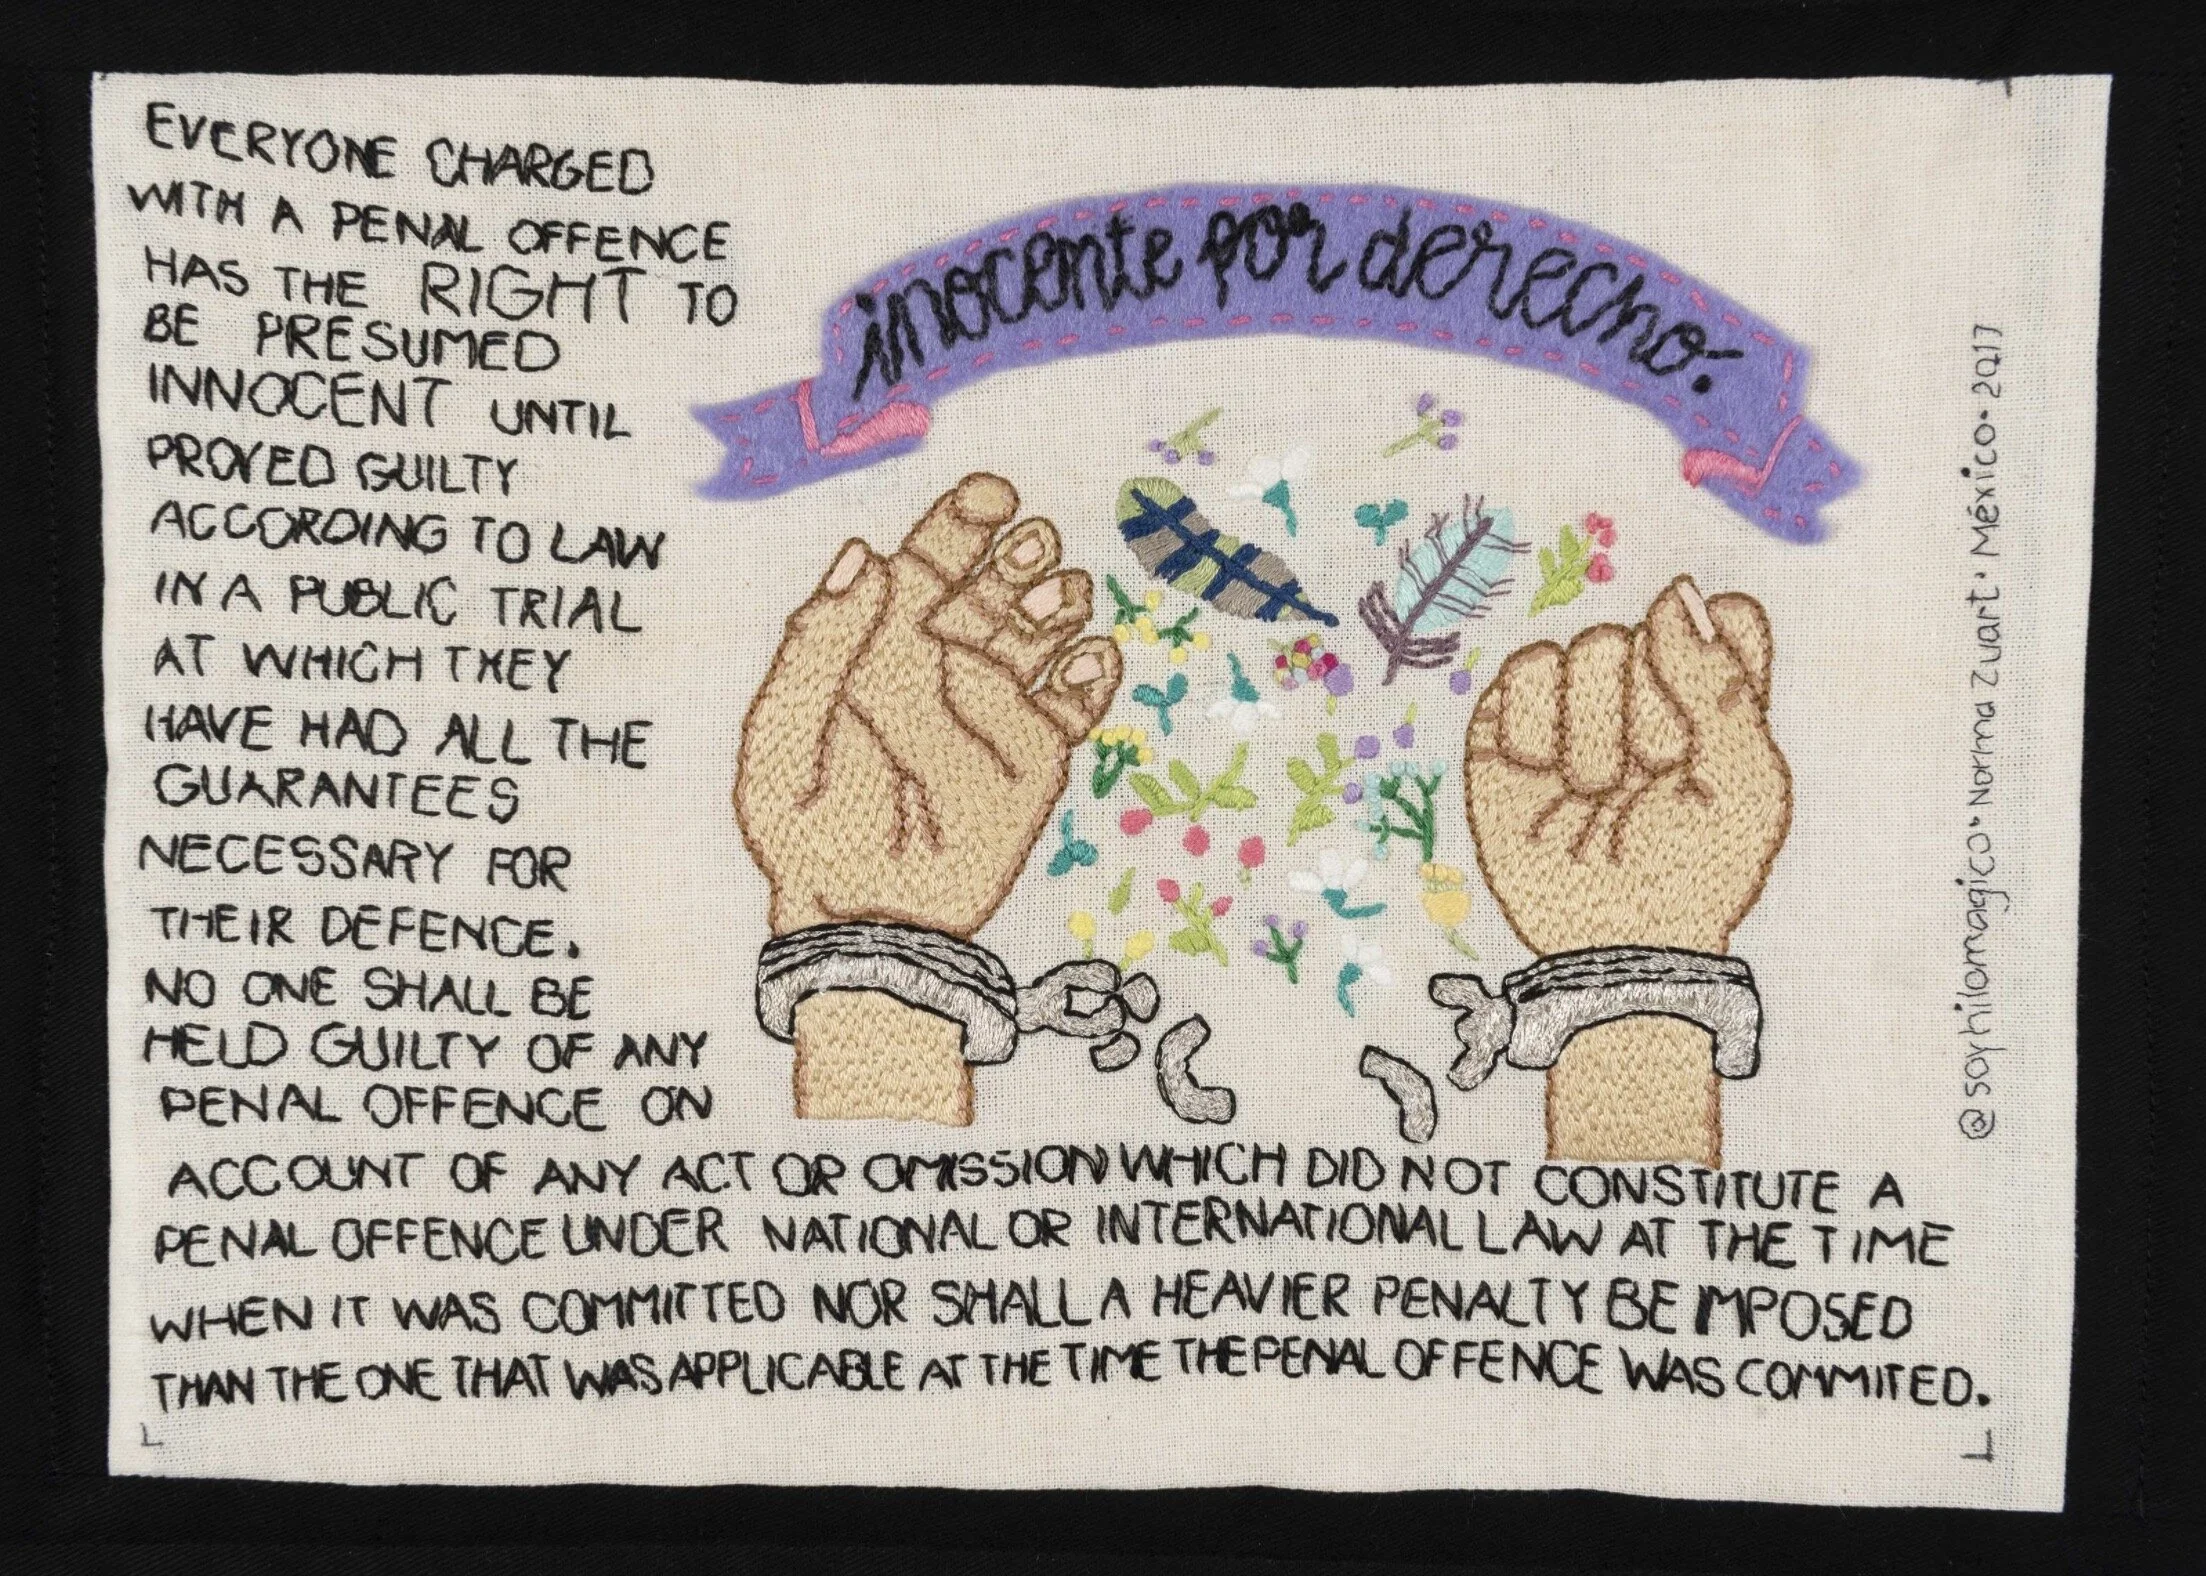 EVERYONE CHARGED
WITH A PENAL OFFENCE
HAS THE RIGHT TO
BE PRESUMED
INNOCENT UNTIL
PROVED GUILTY
ACCORDING TO LAW
IN A PUBLIC TRIAL
AT WHICH THEY
HAVE HAD ALL THE
GUARANTEES
NECESSARY FOR
THEIR DEFENCE.
NO ONE SHALL BE
HELD GUILTY OF ANY
PENAL OFFENCE ON
ACCOUNT OF ANY ACT OR OMISSION WHICH DID NOT CONSTITUTE A
PENAL OFFENCE UNDER NATIONAL OR INTERNATIONAL LAW AT THE TIME
WHEN IT WAS COMMITTED NOR SHALL A HEAVIER PENALTY BE IMPOSED
THAN THE ONE THAT WAS APPLICABLE AT THE TIME THE PENAL OFFENCE WAS COMMITED.
inocente por derecho.
@soyhilomagico • Norma Zuart • México • 2017